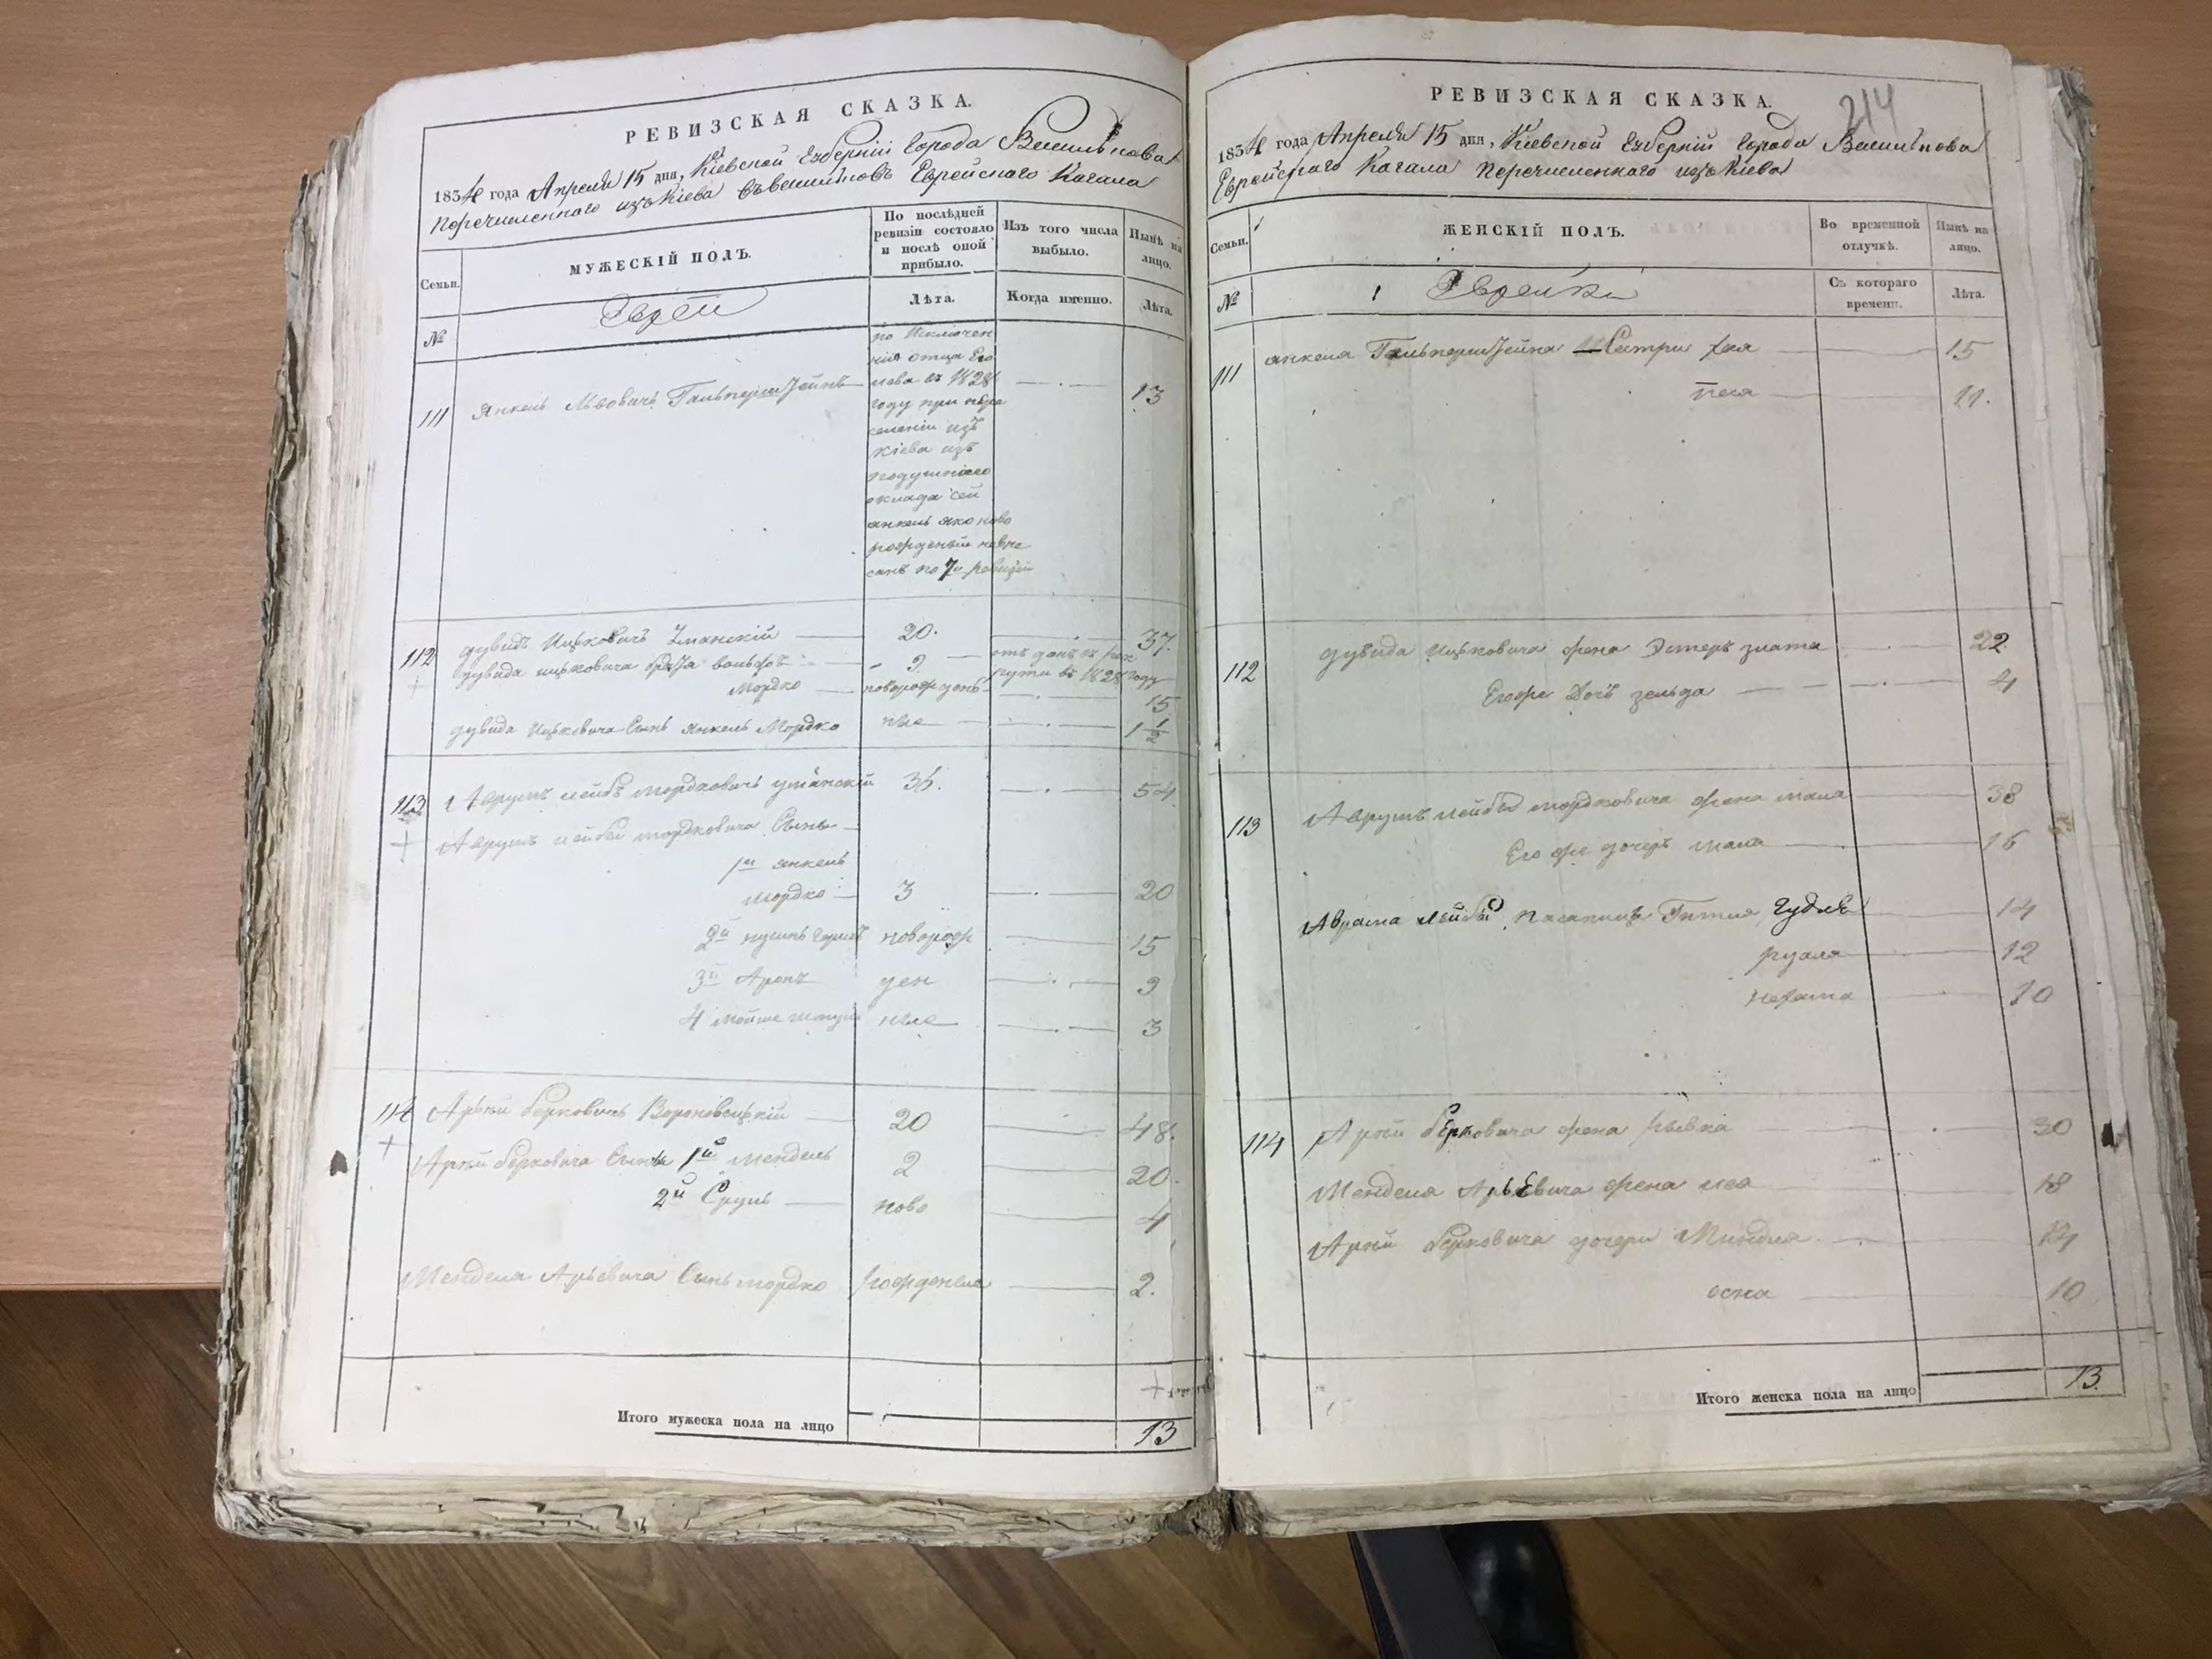 РЕВИЗСКАЯ СКАЗКА.
1834 года Апреля 15 дня, Кіевской Губерніи Города Василькова
перечисленнаго изъ Кіева въ Васильковъ Еврейскаго Кагала
Семьи.
МУЖЕСКІЙ ПОЛЪ.
По послѣдней ревизіи состояло и послѣ оной прибыло.
Изъ того числа выбыло.
Нынѣ на лицо.
№
Евреи
Лѣта.
Когда именно.
Лѣта.
111 Янкель Львовичъ Гальперштейнъ 13
по исключен
ніи отца Его
лева въ 1828
году при пере
селеніи изъ
Кіева изъ
подушнаго
оклада сей
янкель яко ново
рожденый невпи
санъ по 7й ревизіи
112 дувидъ Ицковичъ Уманскій 20. 37.
дувида ицковича брата вольфъ 9 отъ данъ въ рек
рути въ 1828 году
Мордко новорожден 15
дувида Ицковича Сынъ Янкель Мордко ные 1 1/2
113 Аврумъ лейбъ мордковичъ уманскій 36. 54.
Аврумъ лейби мордковича Сынъ
1й янкель
мордко 3 20
2й новорож 15
3й Аронъ ден 9
4 мойше ные 3
114 Арьи берковичъ 20 48.
Арьи берковича Сыны 1й мендель 2 20.
2й Сруль ново 4
Менделя Арьевича Сынъ мордко рожденые 2.
Итого мужеска пола на лицо 13
214
РЕВИЗСКАЯ СКАЗКА.
1834 года Апреля 15 дня, Кіевской Губерніи Города Василькова
Еврейскаго Кагала перечисленнаго изъ Кіева
Семьи.
ЖЕНСКІЙ ПОЛЪ.
Во временной отлучкѣ.
Нынѣ на лицо.
№
Еврейки
Съ котораго времени.
Лѣта.
111 янкеля Гальперштейна Сестри хая 15
песя 11.
112 дувида Ицковича жена Эстеръ злата 22.
Егоже Дочь зельда 4
113 Аврумъ лейбы мордковича жена маля 38
Его же дочерь 16
Аврама лейбы Гитля, Гудля 14
рухля 12
нехама 10
114 Арьи берковича жена Рывка 30
Менделя Арьевича жена лея 18
Арьи берковича дочери Миндля 14
осна 10
Итого женска пола на лицо 13.